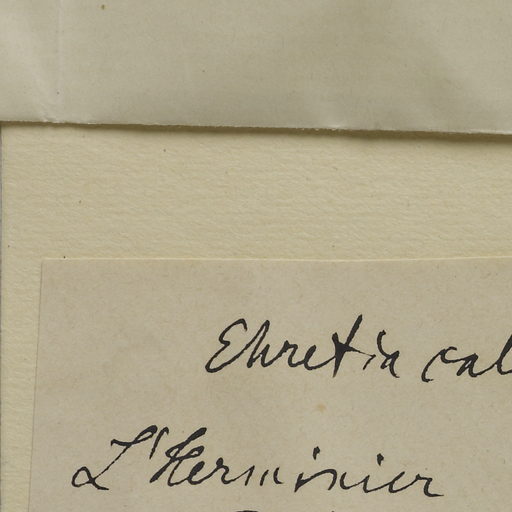 Ehretia cal
L'Herminier